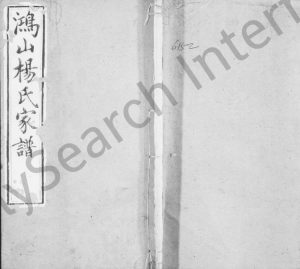 鴻山楊氏家譜
ilySearch Intern